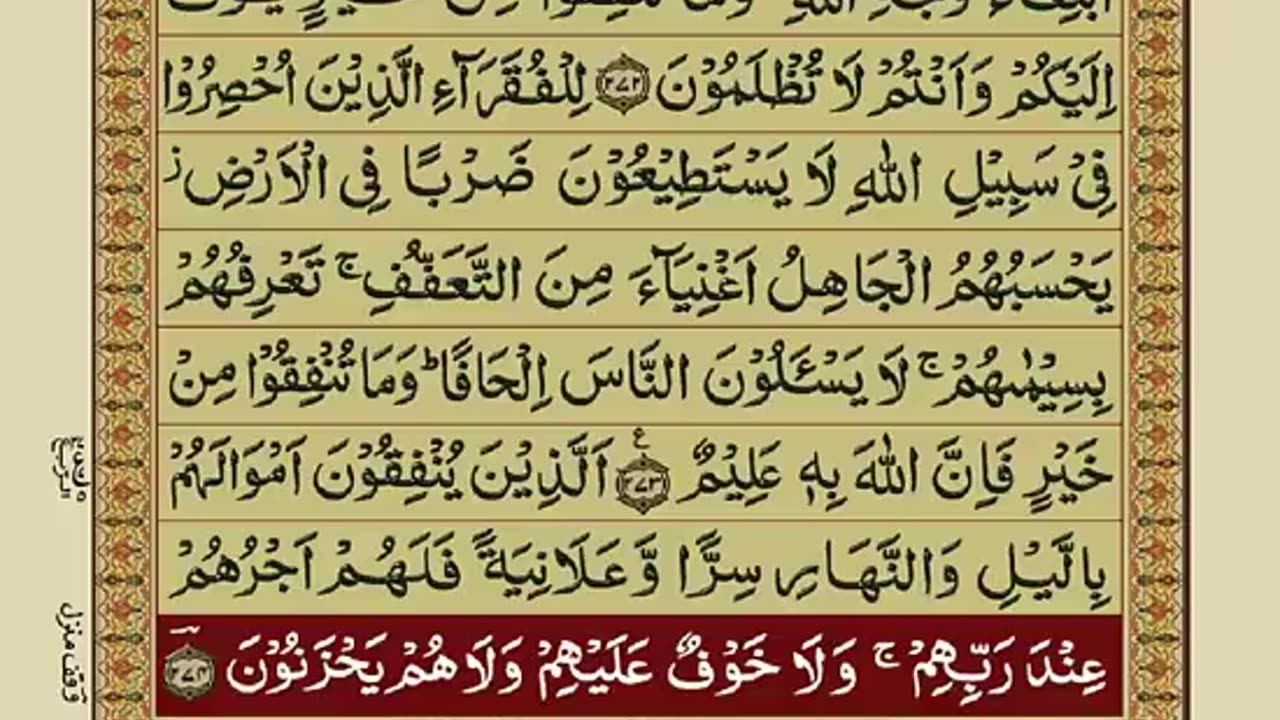 ابْتِغَآءَ وَجْهِ اللّٰهِ وَمَا تُنْفِقُوْا مِنْ خَيْرٍ يُّوَفَّ
اِلَيْكُمْ وَاَنْتُمْ لَا تُظْلَمُوْنَ ﴿۲۷۲﴾ لِلْفُقَرَآءِ الَّذِيْنَ اُحْصِرُوْا
فِيْ سَبِيْلِ اللّٰهِ لَا يَسْتَطِيْعُوْنَ ضَرْبًا فِي الْاَرْضِ ز
يَحْسَبُهُمُ الْجَاهِلُ اَغْنِيَآءَ مِنَ التَّعَفُّفِ ج تَعْرِفُهُمْ
بِسِيْمٰىهُمْ ج لَا يَسْـَٔلُوْنَ النَّاسَ اِلْحَافًا ط وَمَا تُنْفِقُوْا مِنْ
خَيْرٍ فَاِنَّ اللّٰهَ بِهٖ عَلِيْمٌ ﴿۲۷۳﴾ ع اَلَّذِيْنَ يُنْفِقُوْنَ اَمْوَالَهُمْ
بِالَّيْلِ وَالنَّهَارِ سِرًّا وَّعَلَانِيَةً فَلَهُمْ اَجْرُهُمْ
عِنْدَ رَبِّهِمْ ج وَلَا خَوْفٌ عَلَيْهِمْ وَلَا هُمْ يَحْزَنُوْنَ ﴿۲۷۴﴾
وقف منزل